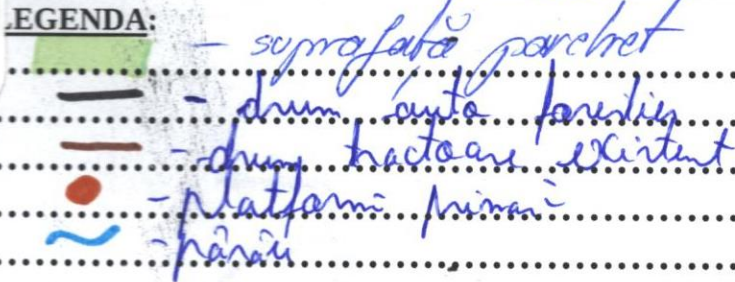 LEGENDA:
- suprafată parchet
- drum auto forestier
- drum tractoare existent
- platformă primară
- pârâu